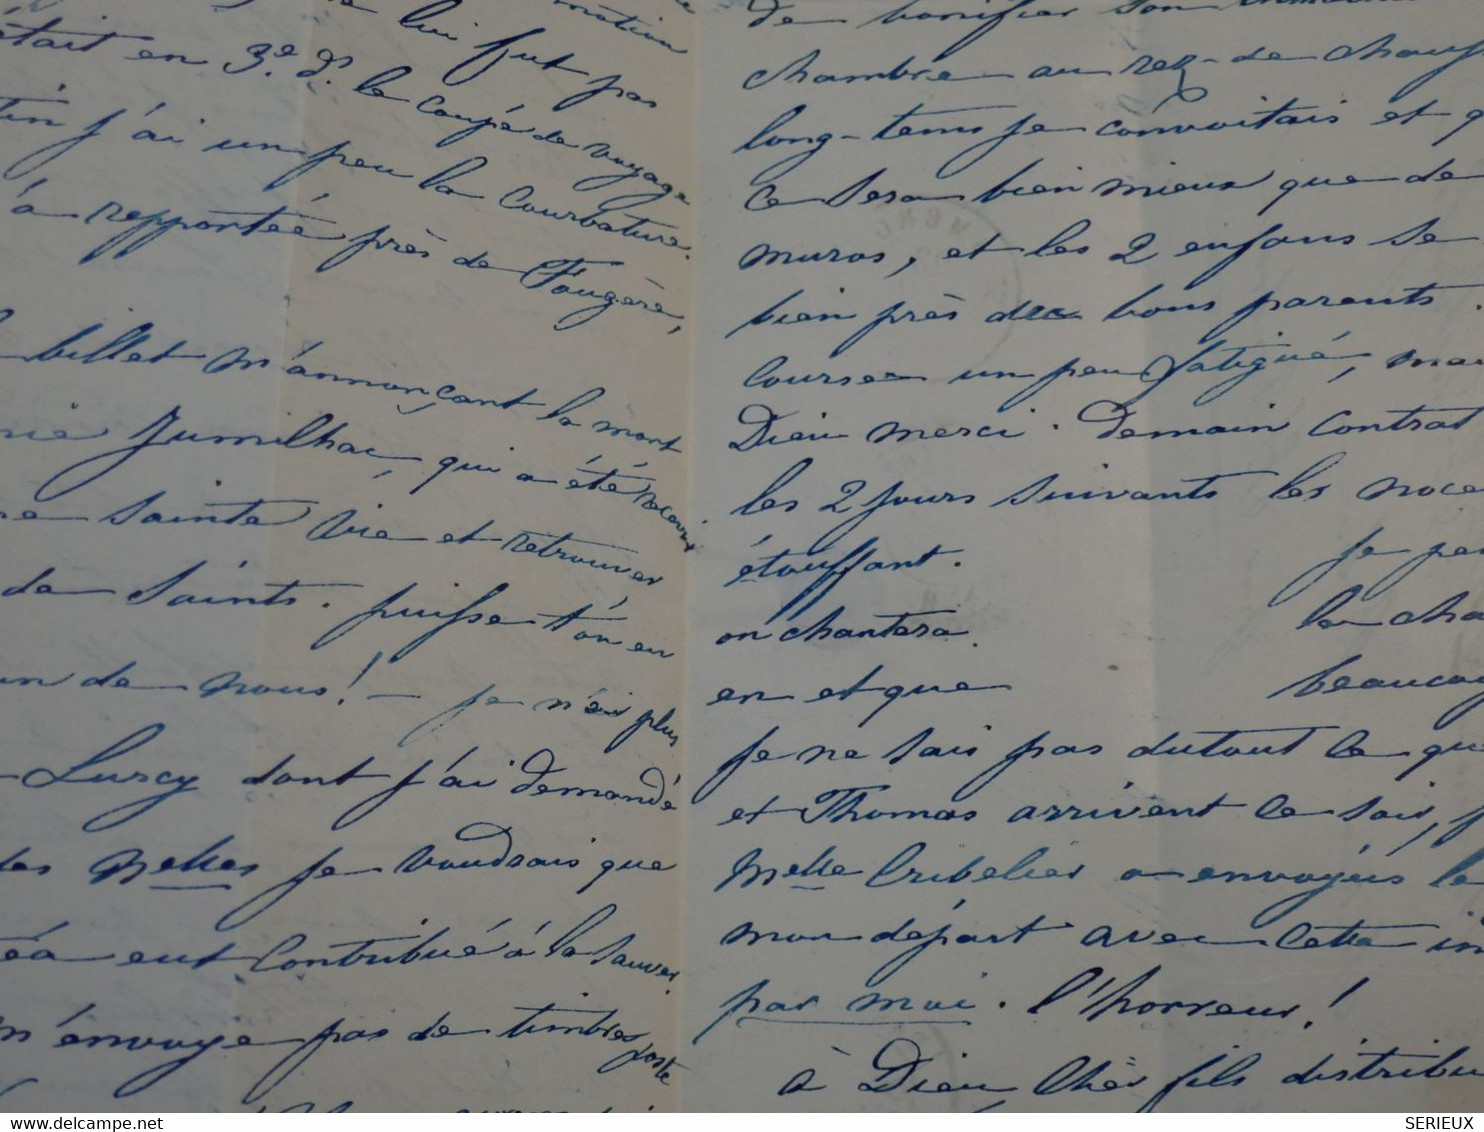 lui fut pas
était en 3e. d. le coupé de voyage
j'ai un peu la courbature.
a repportée près de Fougère,
billet m'annonçant la mort
Jumilhac, qui a été
sainte vie et retrouver
de Saints. puisse t'on en
un de nous! - je n'ai plus
Lurcy dont j'ai demandé
des Melles je voudrais que
eut contribué à la sauver.
m'envoye pas de timbres poste
de bonifier son
chambre au rez-de chauss
long-tems je convoitais et q
ce sera bien mieux que de
muros, et les 2 enfans se
bien près des bons parents.
course un peu fatigué, mai
Dieu merci. Demain contrat
les 2 jours suivants les noce
étouffant. je
on chantera. la cha
en et que beaucou
je ne sais pas dutout ce que
et Thomas arrivent ce soir,
Melle Cribelier a envoyés le
mon départ avec cette in
par moi. l'horreur!
à Dieu, cher fils distribu
Delcampe.net
SERIEUX